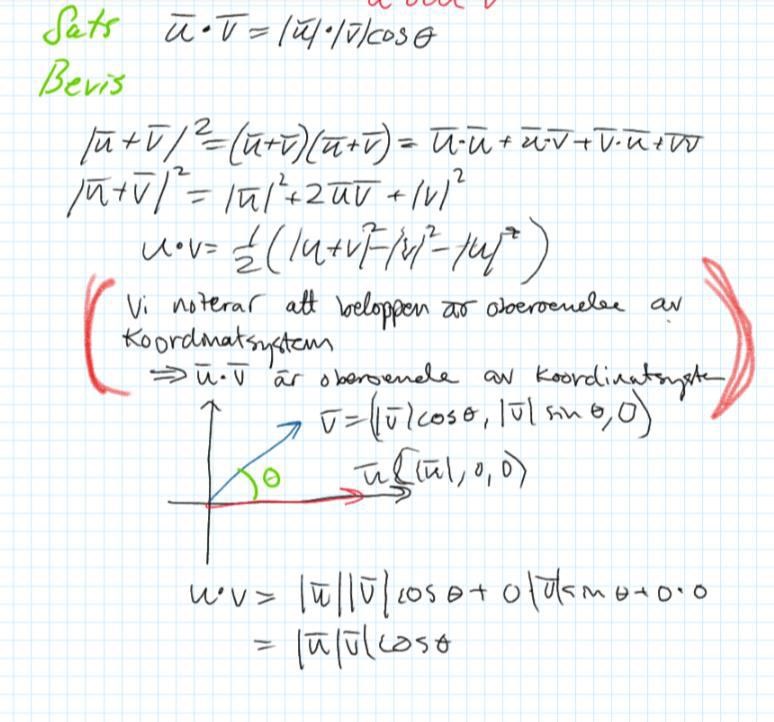 Sats ū·v̄ = |ū|·|v̄|cosθ
Bevis
|ū+v̄|² = (ū+v̄)(ū+v̄) = ū·ū + ū·v̄ + v̄·ū + v̄v̄
|ū+v̄|² = |ū|² + 2ūv̄ + |v|²
u·v = ½(|u+v|² - |v|² - |u|²)
Vi noterar att beloppen är oberoende av
Koordinatsystem
⇒ ū·v̄ är oberoende av Koordinatsystem
v̄ = (|v̄|cosθ, |v̄| sin θ, 0)
θ ū = (|ū|, 0, 0)
u·v = |ū||v̄|cos θ + 0|v̄|sin θ + 0·0
= |ū||v̄|cosθ